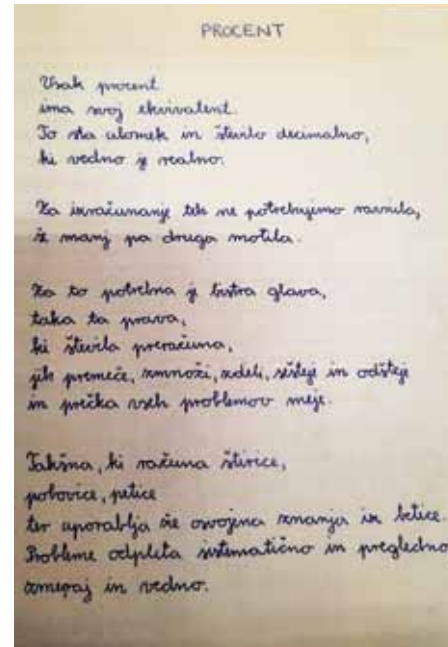 PROCENT
Vsak procent
ima svoj ekvivalent.
To sta ulomek in število decimalno,
ki vedno je realno.
Za izračunanje teh ne potrebujemo ravnila,
še manj pa druga motila.
Za to potrebna je bistra glava,
taka ta prava,
ki števila preračuna,
jih premeče, zmnoži, zdeli, sešteje in odšteje
in prečka vseh problemov meje.
Takšna, ki računa štirice,
polovice, petice
ter uporablja že osvojena znanja iz betice.
Probleme odpleta sistematično in pregledno
zmeraj in vedno.